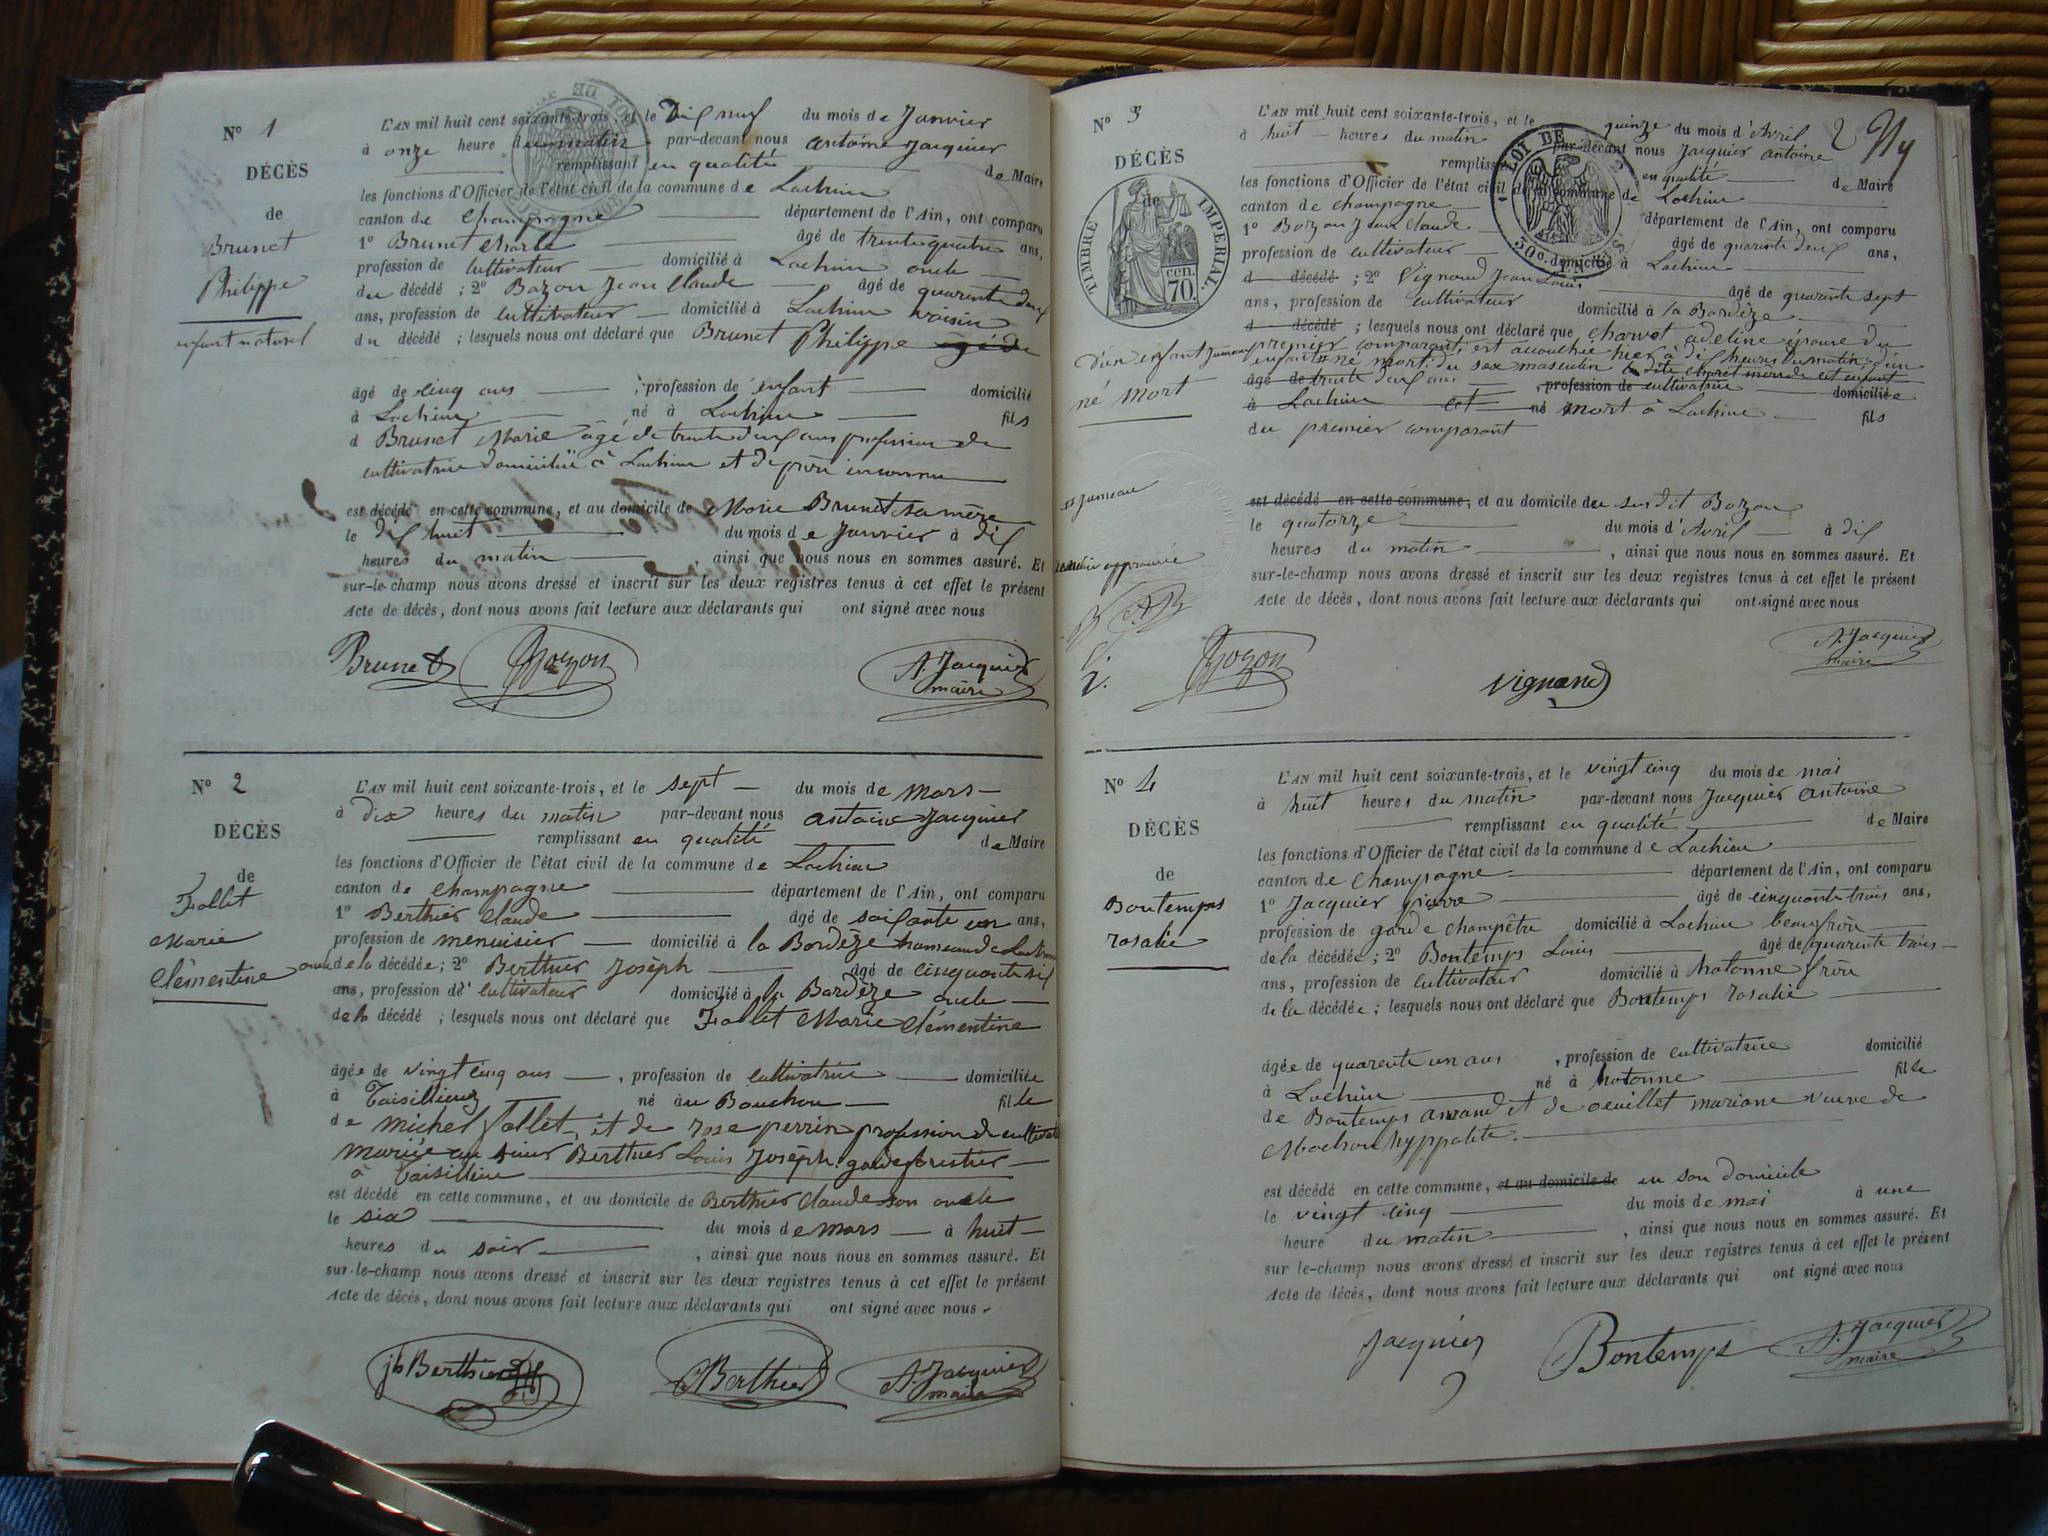 N° 1
DÉCÈS
de
Brunet
Philippe
enfant naturel
L'AN mil huit cent soixante-trois, et le Dix neuf du mois de Janvier
à onze heure du matin par-devant nous antoine Jacquier
remplissant en qualité de Maire
les fonctions d'Officier de l'état civil de la commune de Lochieu
canton de Champagne département de l'Ain, ont comparu
1° Brunet Charle âgé de trente quatre ans,
profession de Cultivateur domicilié à Lochieu oncle
du décédé ; 2° Bozon Jean Claude âgé de quarente deux
ans, profession de Cultivateur domicilié à Lochieu voisin
du décédé ; lesquels nous ont déclaré que Brunet Philippe
âgé de cinq ans ; profession de enfant domicilié
à Lochieu né à Lochieu fils
d Brunet Marie âgé de trente deux ans profession de
cultivatrice domiciliée à Lochieu et de père inconnu
est décédé en cette commune, et au domicile de Marie Brunet sa mère
le dix huit du mois de Janvier à dix
heures du matin , ainsi que nous nous en sommes assuré. Et
sur-le-champ nous avons dressé et inscrit sur les deux registres tenus à cet effet le présent
Acte de décès, dont nous avons fait lecture aux déclarants qui ont signé avec nous
Brunet Bozon A. Jacquier
maire
N° 2
DÉCÈS
de
Follet
Marie
Clémentine
L'AN mil huit cent soixante-trois, et le sept du mois de Mars
à dix heures du matin par-devant nous antoine Jacquier
remplissant en qualité de Maire
les fonctions d'Officier de l'état civil de la commune de Lochieu
canton de Champagne département de l'Ain, ont comparu
1° Berthier Claude âgé de soixante un ans,
profession de menuisier domicilié à la Bordèze hameau de Lochieu
oncle de la décédée ; 2° Berthier Joseph âgé de cinquante six
ans, profession de cultivateur domicilié à la Bardèze oncle
de la décédé ; lesquels nous ont déclaré que Follet Marie Clémentine
âgée de vingt cinq ans , profession de cultivatrice domiciliée
à Taisillieu né au Bouchou fille
de Michel follet, et de rose perrin profession de cultivate
mariée au sieur Berthier Louis Joseph garde forestier
à Taisillieu
est décédé en cette commune, et au domicile de Berthier Claude son oncle
le six du mois de Mars à huit
heures du soir , ainsi que nous nous en sommes assuré. Et
sur-le-champ nous avons dressé et inscrit sur les deux registres tenus à cet effet le présent
Acte de décès, dont nous avons fait lecture aux déclarants qui ont signé avec nous
jh Berthier Berthier A. Jacquier
maire
2
N° 3
DÉCÈS
de
TIMBRE IMPÉRIAL
70 cen.
D'un enfant Jumeau
né mort
Jumeau
approuvée
L'AN mil huit cent soixante-trois, et le quinze du mois d'Avril
à huit heures du matin par-devant nous Jacquier antoine
remplissant en qualité de Maire
les fonctions d'Officier de l'état civil de la commune de Lochieu
canton de Champagne département de l'Ain, ont comparu
1° Bozon Jean Claude âgé de quarente deux ans,
profession de cultivateur domicilié à Lochieu
d décédé ; 2° Vignand Jean Louis âgé de quarente sept
ans, profession de cultivateur domicilié à la Bardèze
d décédé ; lesquels nous ont déclaré que charvot adeline épouse du
premier comparant, est accouchée hier à dix heures du matin d'un
enfant né mort du sex masculin
âgé de trente deux ans , profession de cultivatrice domiciliée
à Lochieu est né mort à Lochieu fils
du premier comparant
est décédé en cette commune, et au domicile du susdit Bozon
le quatorze du mois d'Avril à dix
heures du matin , ainsi que nous nous en sommes assuré. Et
sur-le-champ nous avons dressé et inscrit sur les deux registres tenus à cet effet le présent
Acte de décès, dont nous avons fait lecture aux déclarants qui ont signé avec nous
Bozon Vignand A. Jacquier
maire
N° 4
DÉCÈS
de
Bontemps
rosalie
L'AN mil huit cent soixante-trois, et le vingt cinq du mois de mai
à huit heures du matin par-devant nous Jacquier antoine
remplissant en qualité de Maire
les fonctions d'Officier de l'état civil de la commune de Lochieu
canton de Champagne département de l'Ain, ont comparu
1° Jacquier pierre âgé de cinquante trois ans,
profession de garde champêtre domicilié à Lochieu beau frère
de la décédée ; 2° Bontemps Louis âgé de quarente trois
ans, profession de cultivateur domicilié à hotonne frère
de la décédée ; lesquels nous ont déclaré que Bontemps rosalie
âgée de quarente un ans , profession de cultivatrice domicilié
à Lochieu né à hotonne fille
de Bontemps amand et de oeuillet mariane veuve de
Mochon hyppolite.
est décédé en cette commune, et au domicile de en son domicile
le vingt cinq du mois de mai à une
heure du matin , ainsi que nous nous en sommes assuré. Et
sur le-champ nous avons dressé et inscrit sur les deux registres tenus à cet effet le présent
Acte de décès, dont nous avons fait lecture aux déclarants qui ont signé avec nous
Jacquier Bontemps A. Jacquier
maire